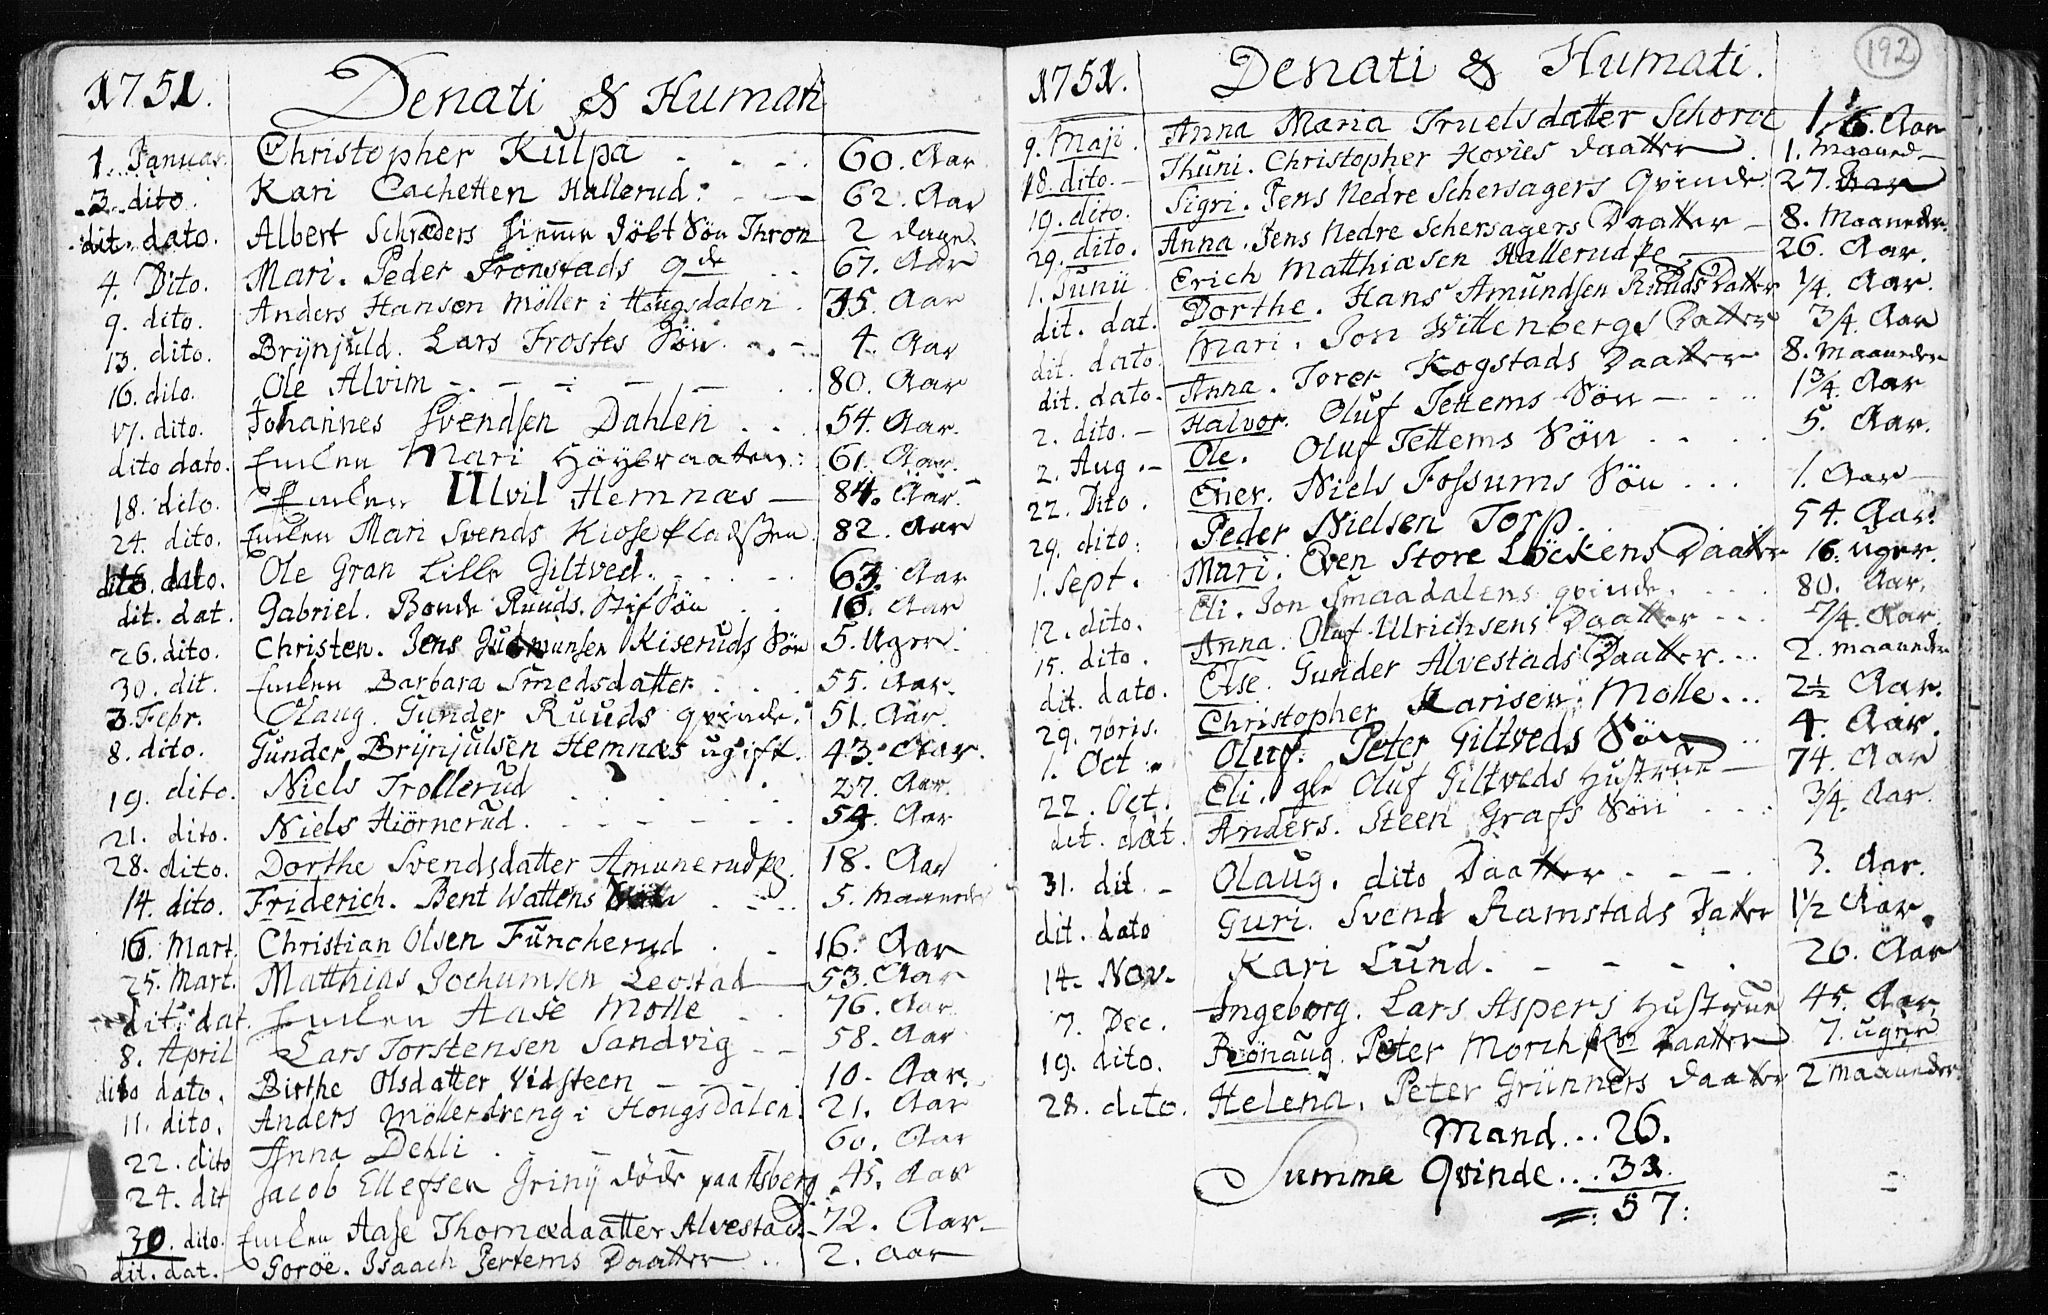 1751. Denati & Humati
1. Januar. Christopher Kulpa - - - 60. Aar
3. dito. Kari Cachetten Hallerud. - - 62. Aar
dit. dato. Albert Schræders hiemme døbt Søn Thron 2 dage
4. Dito. Mari. Peder Tronstads qde .. 67. Aar
9. dito. Anders Hansen Möller i Hougsdalen . 35. Aar
13. dito. Brÿnjuld. Lars Frostes Søn . . - 4. Aar
16. dito. Ole Alvim - . - - - - . . 80. Aar
17. dito. Johannes Svendsen Dahlen . . . 54. Aar.
dito dato. Enken Mari Höÿbraaten: 61. Aar.
18. dito. Enken Ulvil Hemnæs - 84. Aar.
24. dito. Enken Mari Svends 82. Aar
dito dato. Ole Gran Lille Giltved. - . . . 63. Aar
dit. dat. Gabriel. Bonde Ruuds. Stifsøn . . 16. Aar
26. dito. Christen. Jens Gudmunsen Kiseruds Søn 5. Uger.
30. dit. Enken Barbara Smedsdatter . . . 55. Aar.
3. Febr. Olaug. Gunder Ruuds qvinde. 51. Aar.
8. dito. Gunder Brÿnjulsen Hemnæs ugift. 43. Aar.
19. dito. Niels Trollerud . . . . . 27. Aar.
21. dito. Niels Hiörnerud. - - - - - 54. Aar
28. dito. Dorthe Svendsdatter Amunerudpg. 18. Aar
14. dito. Friderich. Bent Wattens Søn . . . 5. Maaneder
16. Mart. Christian Olsen Funcherud . - 16. Aar
25. Mart. Matthias Jochumsen Leostad - 53. Aar
dit. dat. Enken Aase Molle . . 76. Aar
8. April Lars Torstensen Sandvig - - 58. Aar
dito dato. Birthe Olsdatter Vidsteen - - - . 10. Aar.
11. dito. Anders Möllerdreng i Hougsdalen. 21. Aar
22. dito Anna Dehli . - - - 60. Aar
24. dit Jacob Ellefsen Grinÿ døde paa Asberg. 45. Aar
30. dito. Enken Aase Thomædaatter Alvestad - 72. Aar -
dit. dat. Goroe. Isaach Jertems Daatter .. 2. Aar
192
1751. Denati & Humati.
9. Maji. Anna Maria Truelsdatter Schoroe 16. Aar
18. dito. Thuni. Christopher Hovies Daatter . 1. Maaned -
19. dito. Sigri. Jens Nedre Schersagers Qvinde. 27. Aar
29. dito. Anna. Jens Nedre Schersagers Daatter - 8. Maaneder.
1. Junii Erich Matthiæsen Hallerudpe - 26. Aar.
dit. dat. Dorthe. Hans Amundsen Ruuds Datter 1/4. Aar.
dit. dato. Mari. Jon Wittenbergs Datter 3/4. Aar
dit. dato. Anna. Torer Kogstads Daatter 8. Maaneder
2. dito. - Halvor. Oluf Tettems Søn - . . . 1 3/4. Aar
2. Aug. - Ole. Oluf Tettems Søn . . . . 5. Aar.
22. Dito. Evier. Niels Fossums Søn ... 1. Aar -
29. dito. Peder Nielsen Torp. 54. Aar.
1. Sept. Mari. Even Store Löckens Daatter 16. uger.
12. dito. Eli. Jon Smaadalens qvinde. . . . 80. Aar.
15. dito. Anna. Oluf Ulrichsens Daatter - - - 7/4. Aar
dit. dato. Else. Gunder Alvestads Daatter. . . 2. Maaneder
29. 7bris. Christopher Karisen: Molle ... 2 1/2 Aar.
1. Oct. Oluf. Peter Giltveds Søn .. 4. Aar.
22. Oct. Eli. gle Oluf Giltveds Hustrue - 74. Aar
dit. dat. Anders. Steen Grafs Søn . . . 3/4. Aar.
31. dit - Olaug. dito Daatter - - - . 3. Aar.
dit. dato Guri. Svend Ramstads Datter 1 1/2 Aar.
14. Nov. Kari Lund. - - - . 26. Aar
7. Dec. Ingeborg. Lars Aspers Hustrue 45. Aar.
19. dito. Rönaug. Peter Morch Daatter 7. uger
28. dito. Helena. Peter Grünners Daatter 2 Maaneder
Mand... 26.
Summa Qvinde... 31.
57: